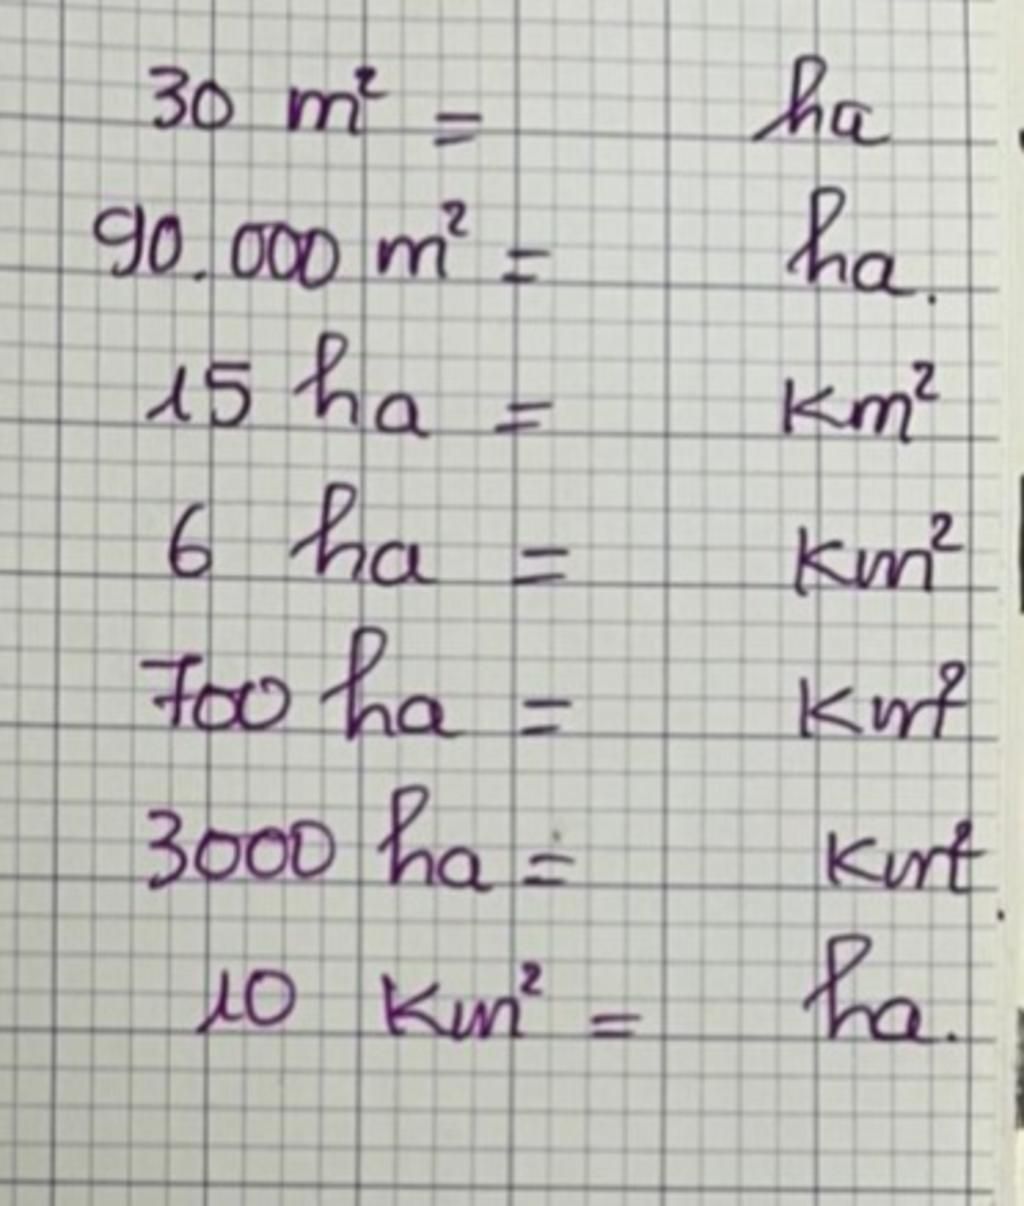 30 m² = ha
90.000 m² = ha.
15 ha = Km²
6 ha = Km²
700 ha = Km²
3000 ha = Km²
10 Km² = ha.